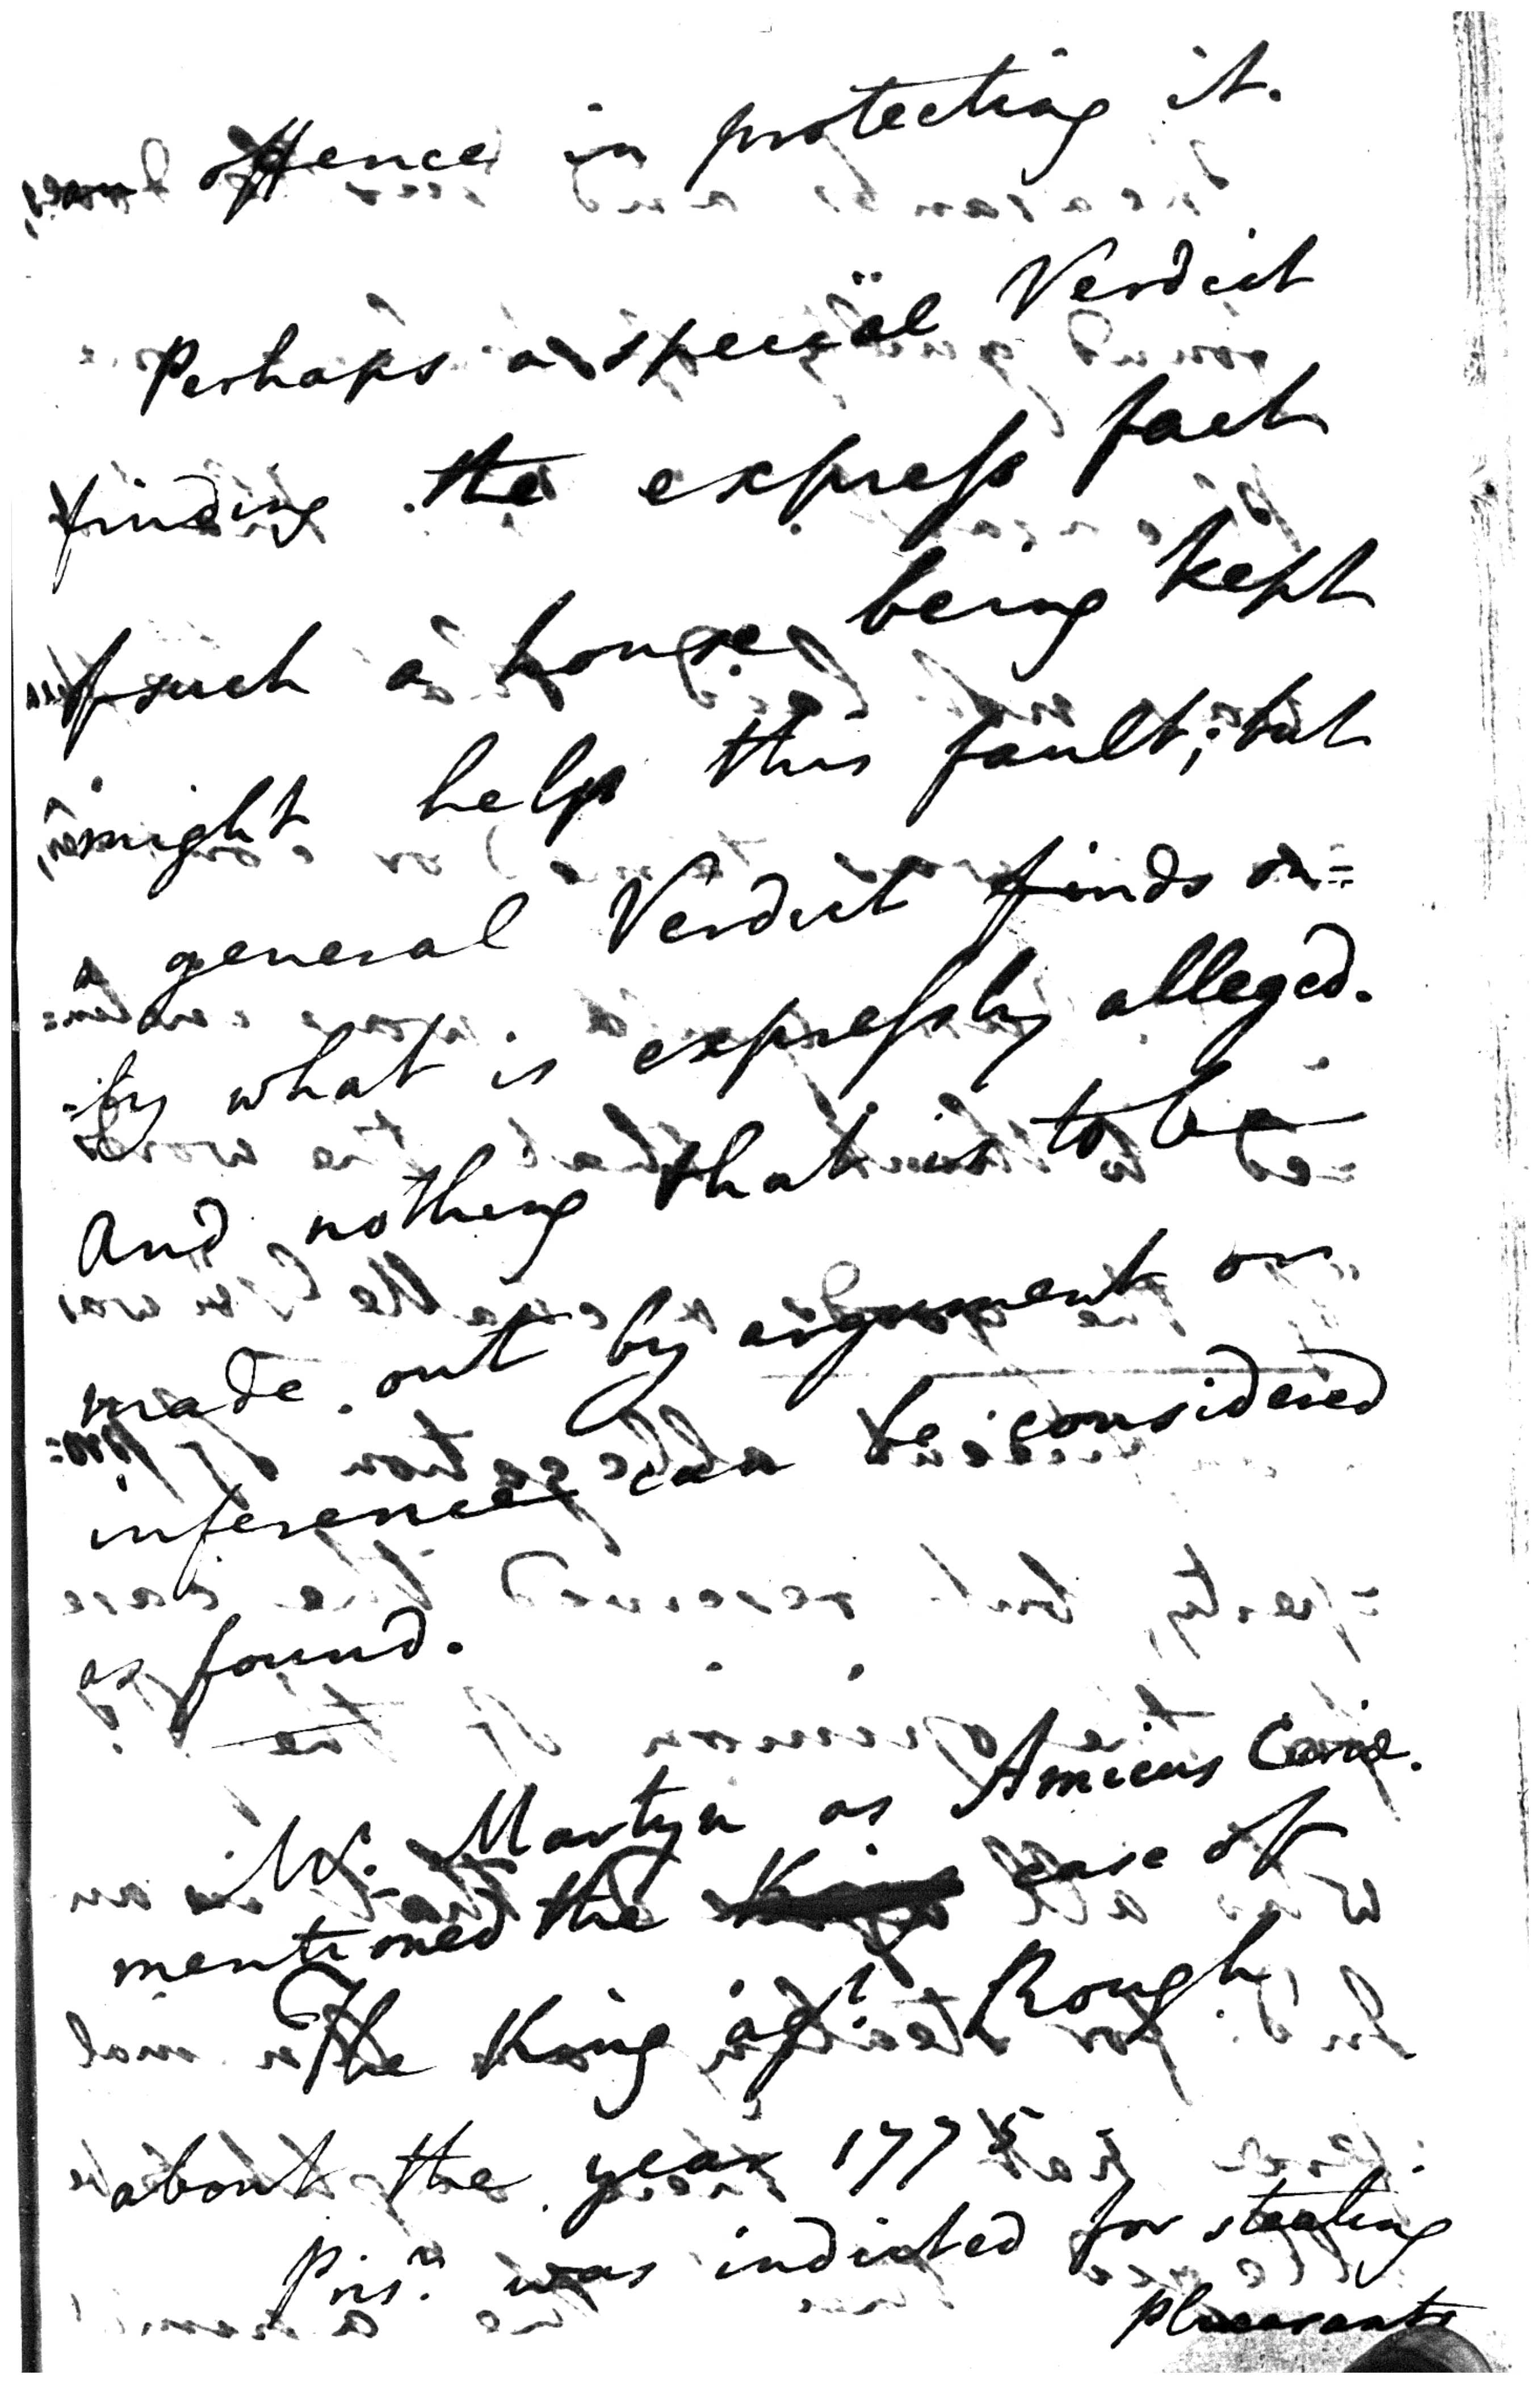 offence in protecting it.
Perhaps a special Verdict
finding the express fact
of such a house being kept
might help this fault; but
a general Verdict finds on=
=ly what is expressly alleged.
And nothing that is to be
made out by argument or
inference can be considered
as found.
Mr. Martyn as Amicus Curiæ.
mentioned the case of
The King agt. Rough
about the year 1775
Prisr. was indicted for stealing
pheasants